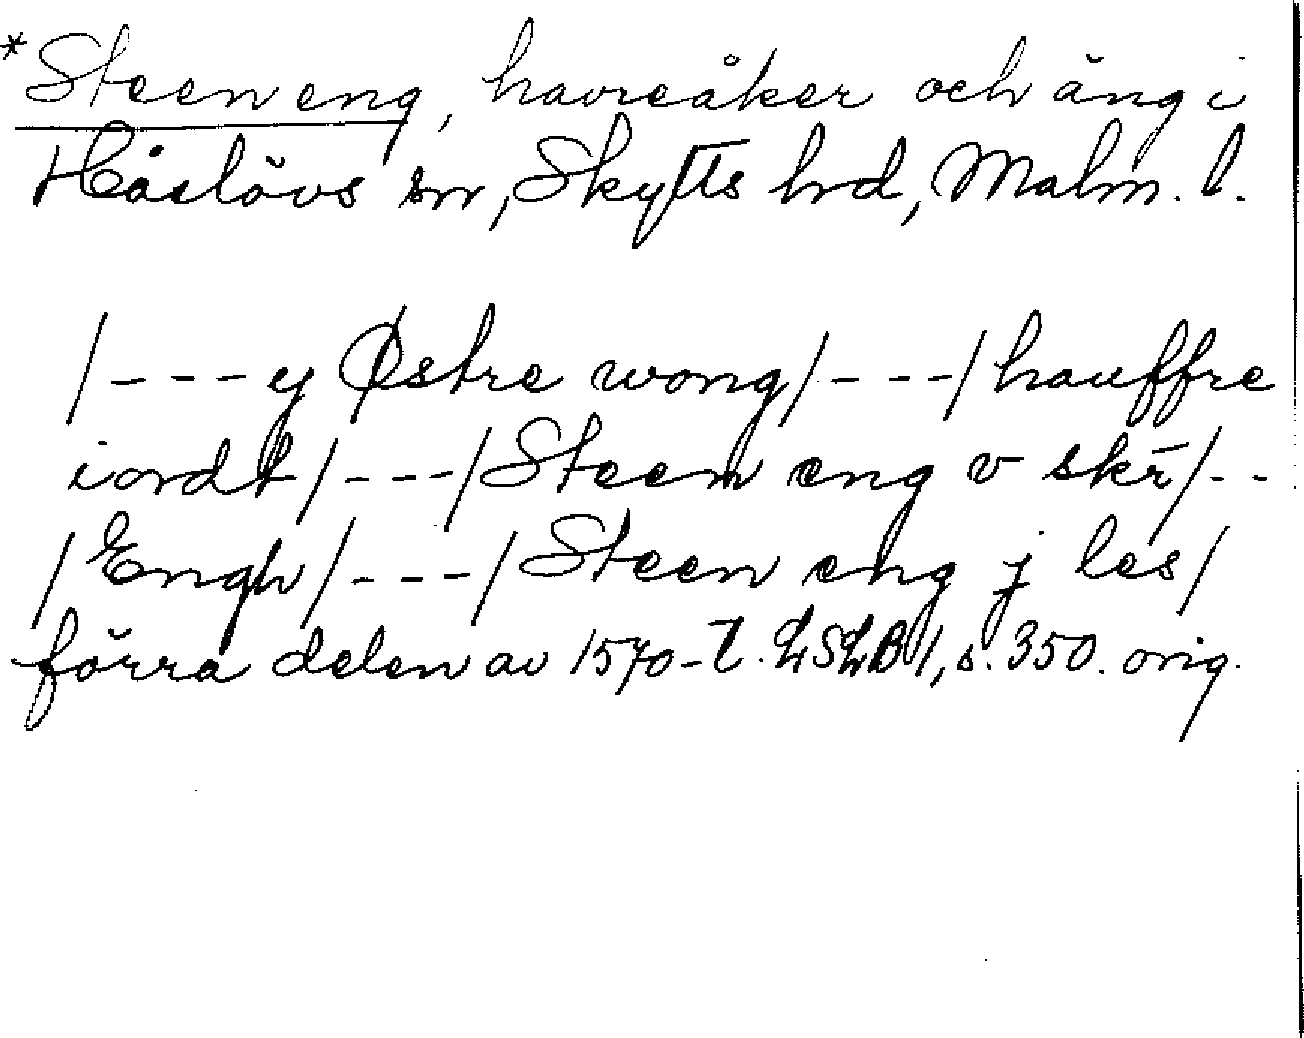 *Steen eng, havreåker och äng i
Håslövs sn, Skytts hrd, Malm. l.
/---y Østre wong/---/hauffre
iordt/---/Steen eng v skr̄/--
/Engh/---/Steen eng j les/
förra delen av 1570-t. LSLB 1, s. 350. orig.